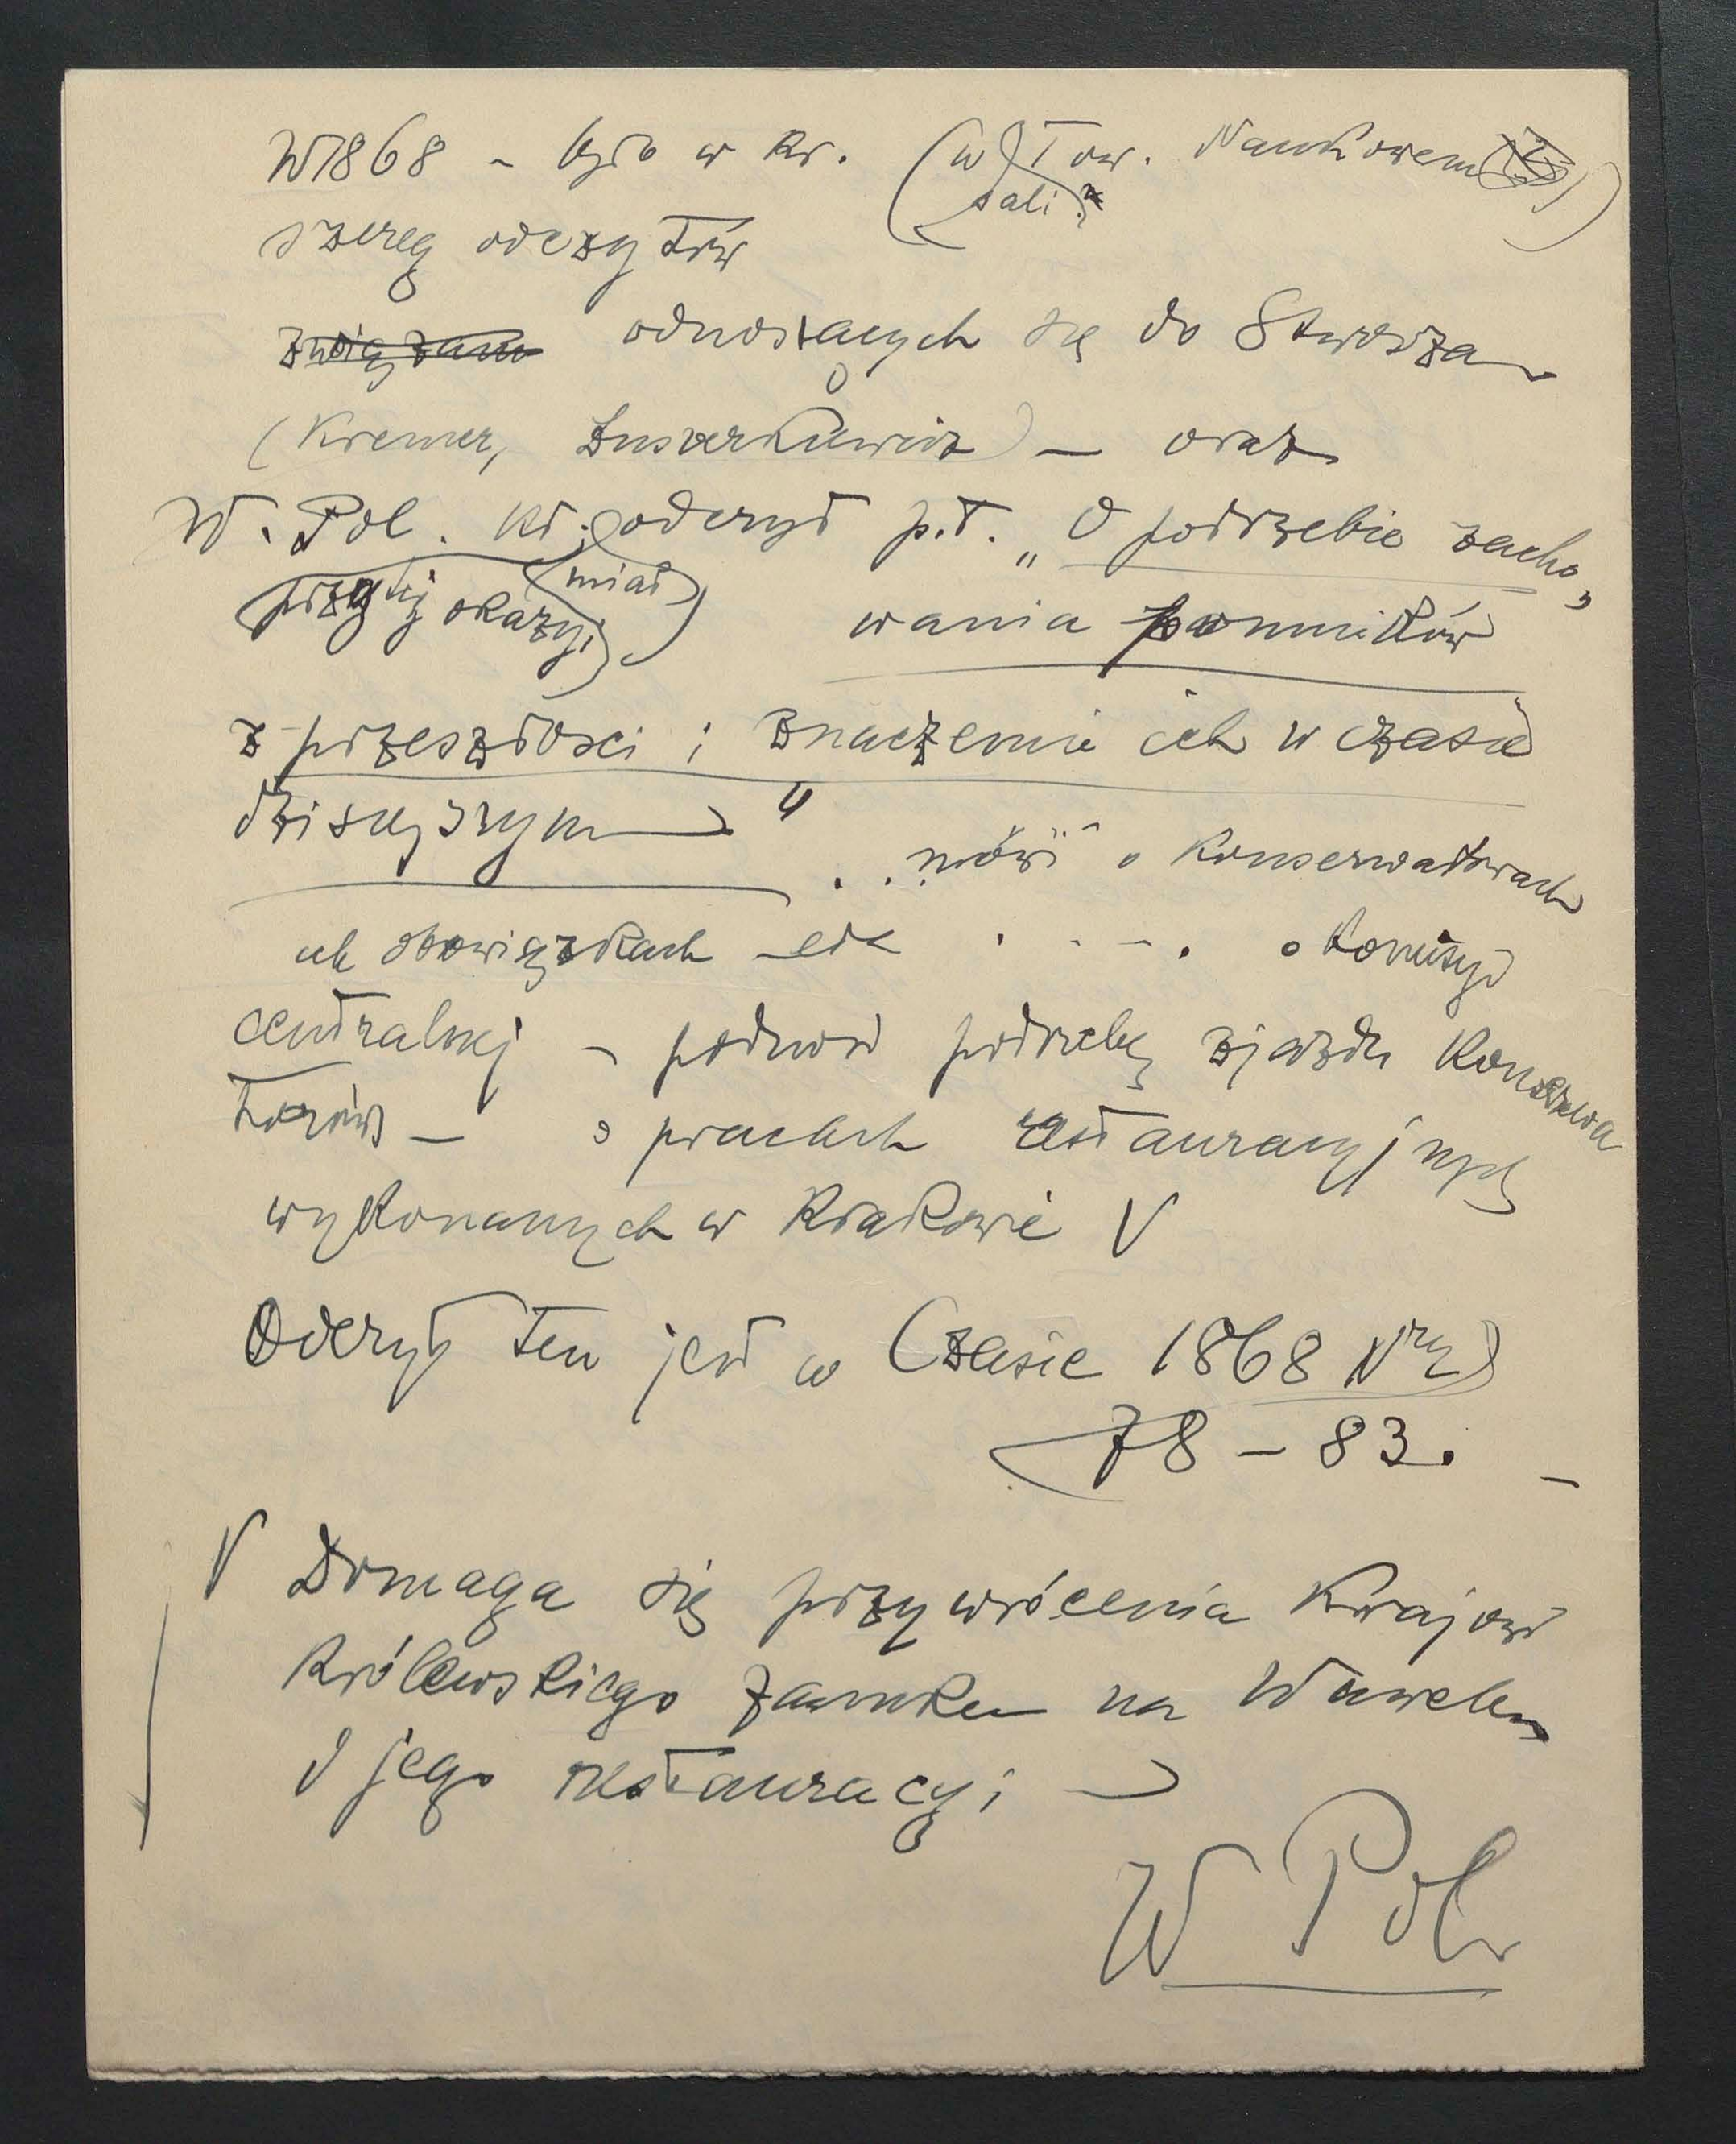 W 1868 – było w Kr. (w Tow. Naukowem)
sali?
szereg odczytów
związane odnoszących się do Stwosza
(Kremer, Łuszczkiewicz) – oraz
W. Pol. odczyt p.t. „O potrzebie zacho„
przy tej okazyi miał
wania pomników
z przeszłości i znaczeniu ich w czasie
dzisiejszym"
. . mówi o Konserwatorach
ich obowiązkach etc . . – . o komisyi
centralnej – podnosi potrzebę zjazdu Konserwa
torów – o pracach restauracyjnych
wykonanych w Krakowie V
Odczyt ten jest w Czasie 1868 Nry
78 – 83. –
V Domaga się przywrócenia Krajowi
Królewskiego zamku na Wawelu
I jego restauracyi
W Pol